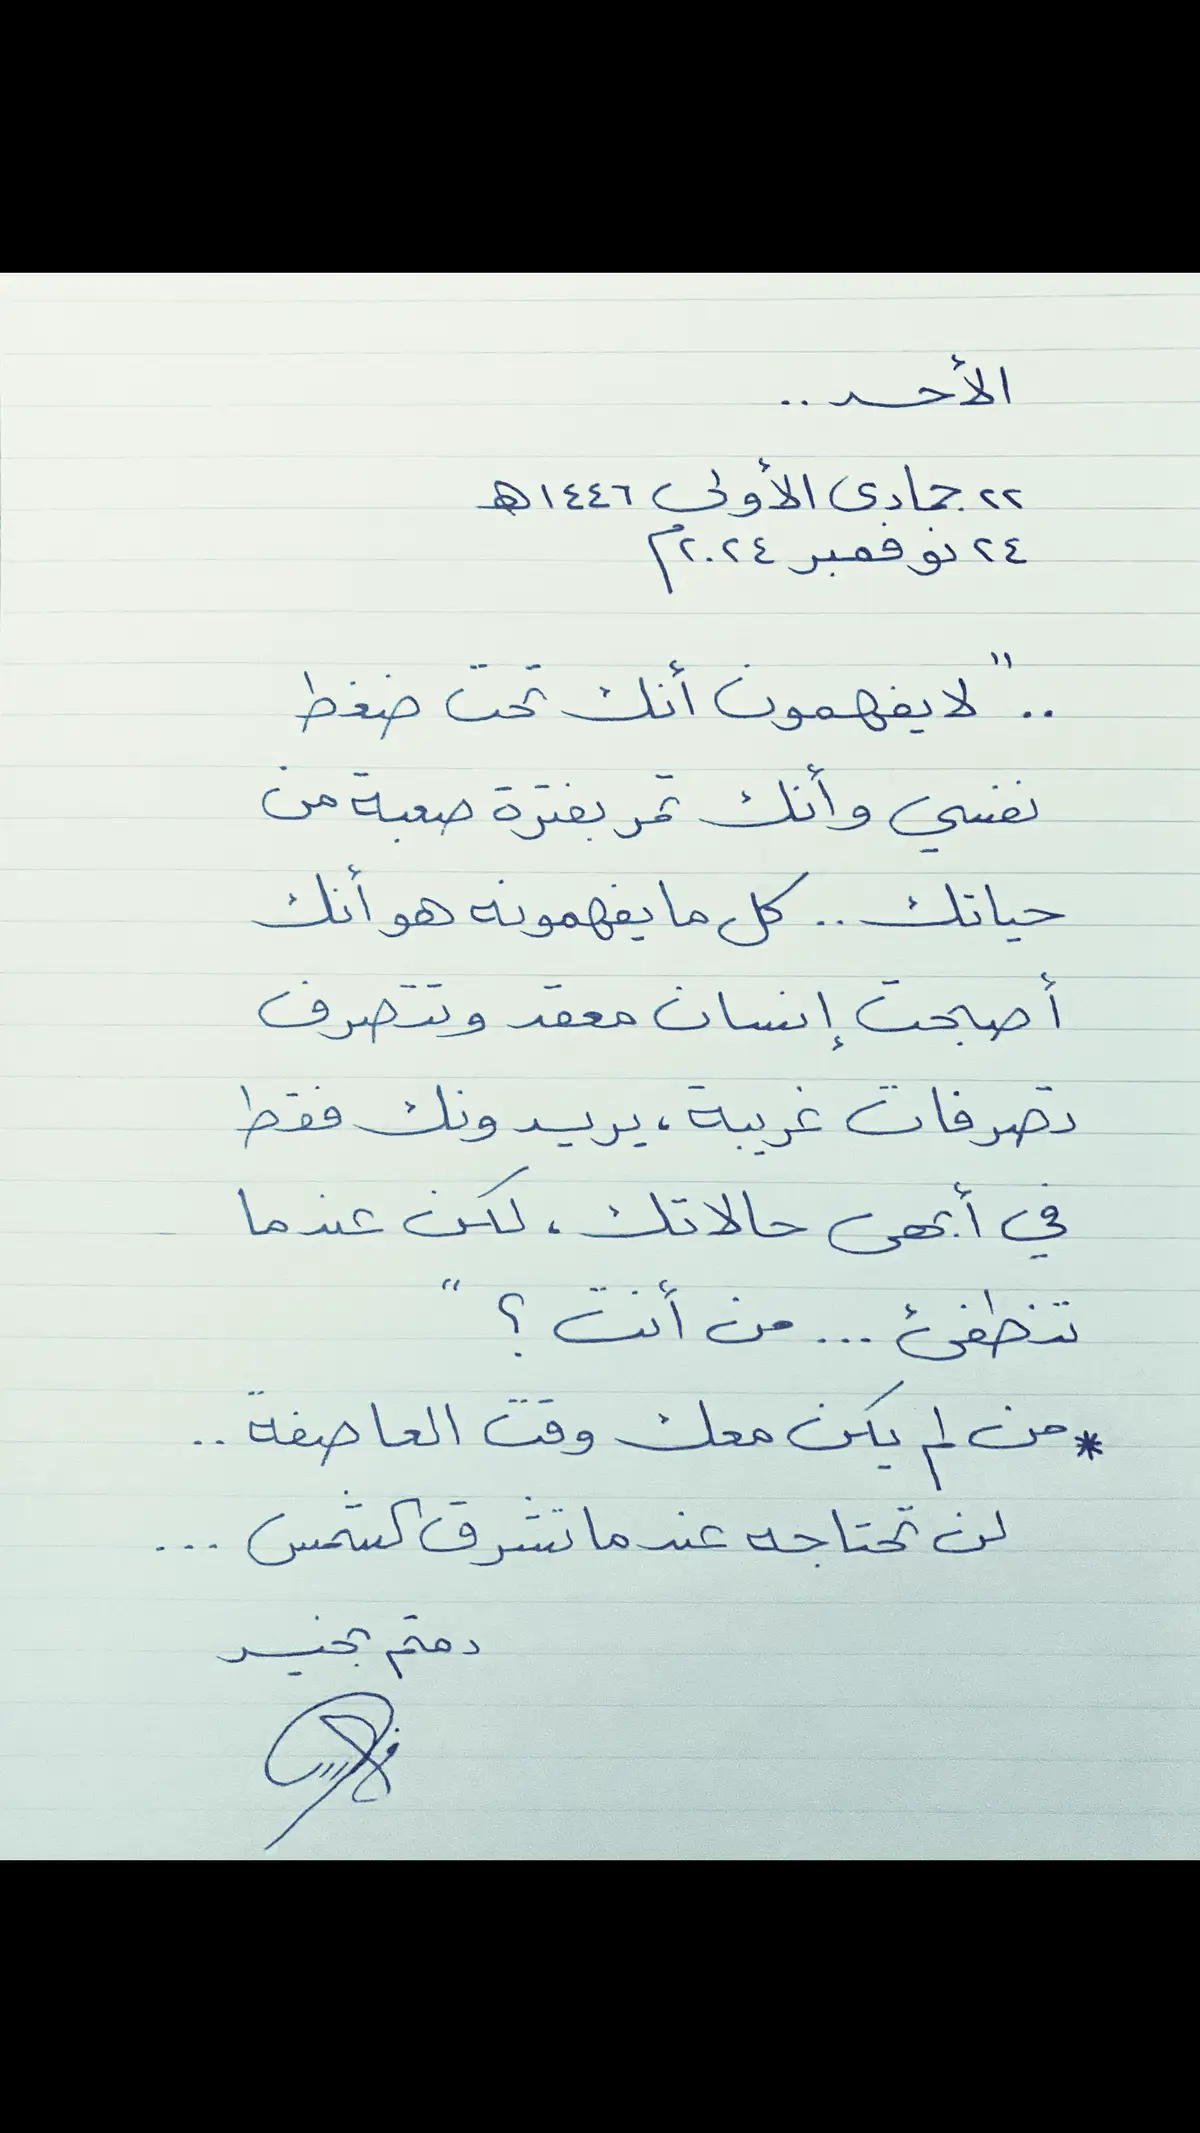 الأحد ..
٢٢ جمادى الأولى ١٤٤٦هـ
٢٤ نوفمبر ٢٠٢٤م
.. "لا يفهمون أنك تحت ضغط
نفسي وأنك تمر بفترة صعبة من
حياتك .. كل ما يفهمونه هو أنك
أصبحت إنسان معقد وتتصرف
تصرفات غريبة ، يريدونك فقط
في أبهى حالاتك ، لكن عندما
تنطفئ ... من أنت ؟ "
* من لم يكن معك وقت العاصفة ..
لن تحتاجه عندما تشرق الشمس ...
دمتم بخيـر